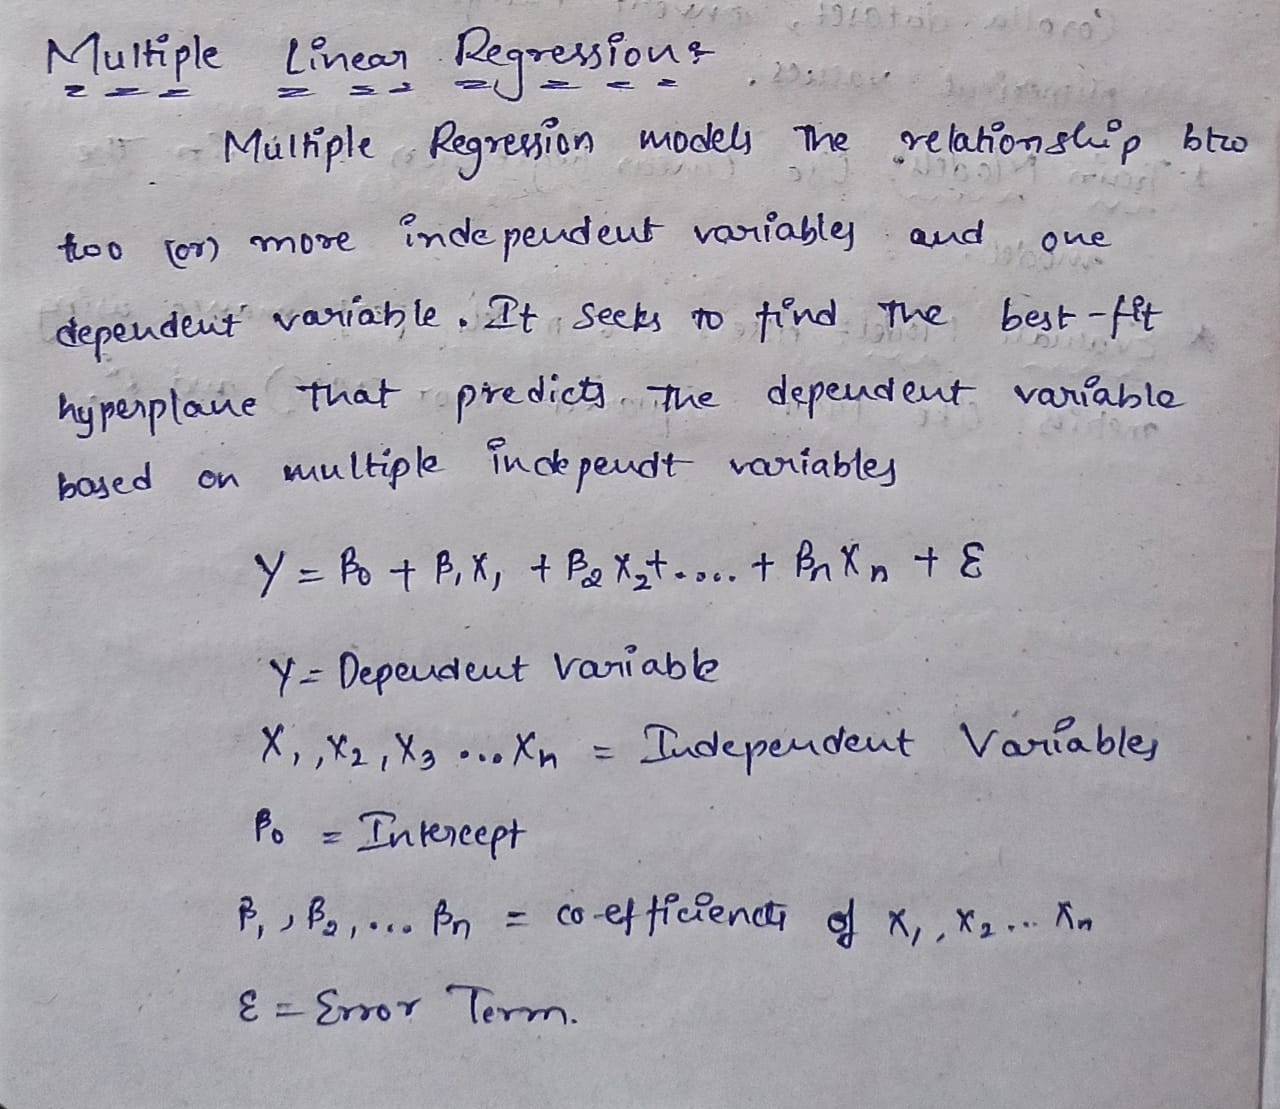 Multiple Linear Regression:
Multiple Regression models the relationship btw
two (or) more independent variables and one
dependent variable. It seeks to find the best-fit
hyperplane that predicts the dependent variable
based on multiple independt variables
Y = β0 + β1X1 + β2X2+..... + βnXn + ε
Y = Dependent Variable
X1, X2, X3 ...Xn = Independent Variables
β0 = Intercept
β1, β2, ... βn = co-efficients of X1, X2 ... Xn
ε = Error Term.